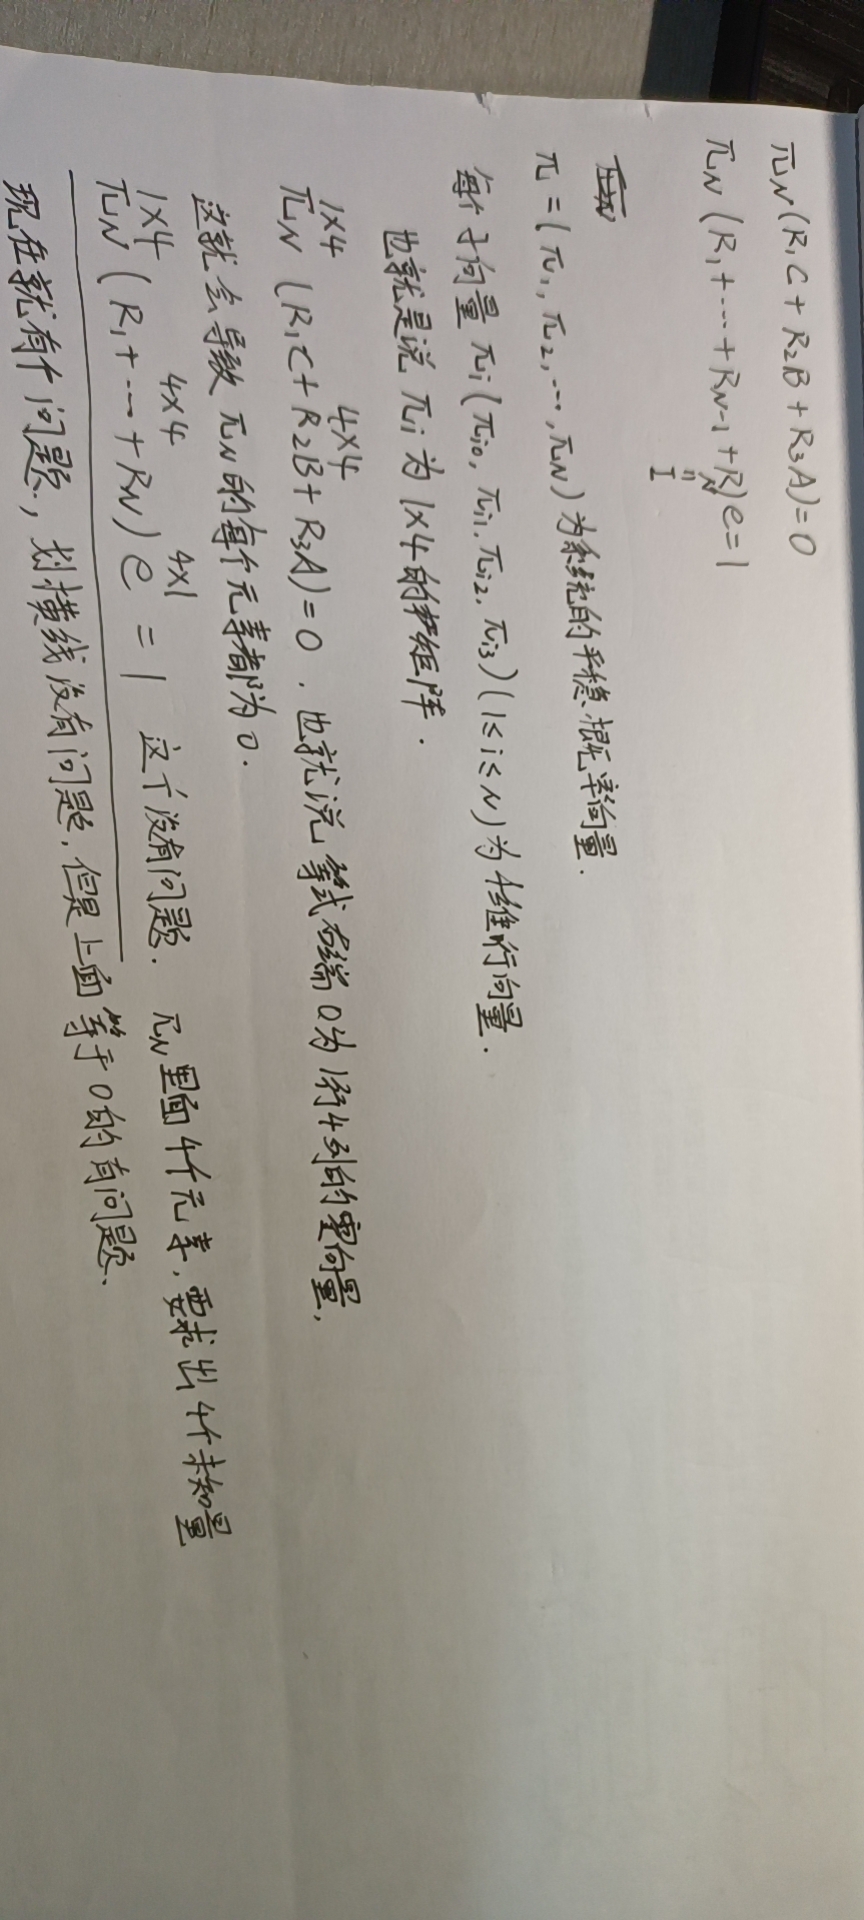 π_N(R₁C+R₂B+R₃A)=0
π_N(R₁+…+R_{N-1}+R_N)e=1
I
π=(π₁,π₂,…,π_N)为系统的平稳概率向量.
每个子向量π_i(π_{i0},π_{i1},π_{i2},π_{i3})(1≤i≤N)为4维行向量.
也就是说π_i为1×4的矩阵.
1×4 4×4
π_N(R₁C+R₂B+R₃A)=0,也就说等式右端0为1行4列的零向量,
这就会导致π_N的每个元素都为0.
1×4 4×4 4×1
π_N(R₁+…+R_N)e=1 这个没有问题. π_N里面4个元素,要求出4个未知量
现在就有个问题,划横线没有问题,但是上面等于0的有问题、